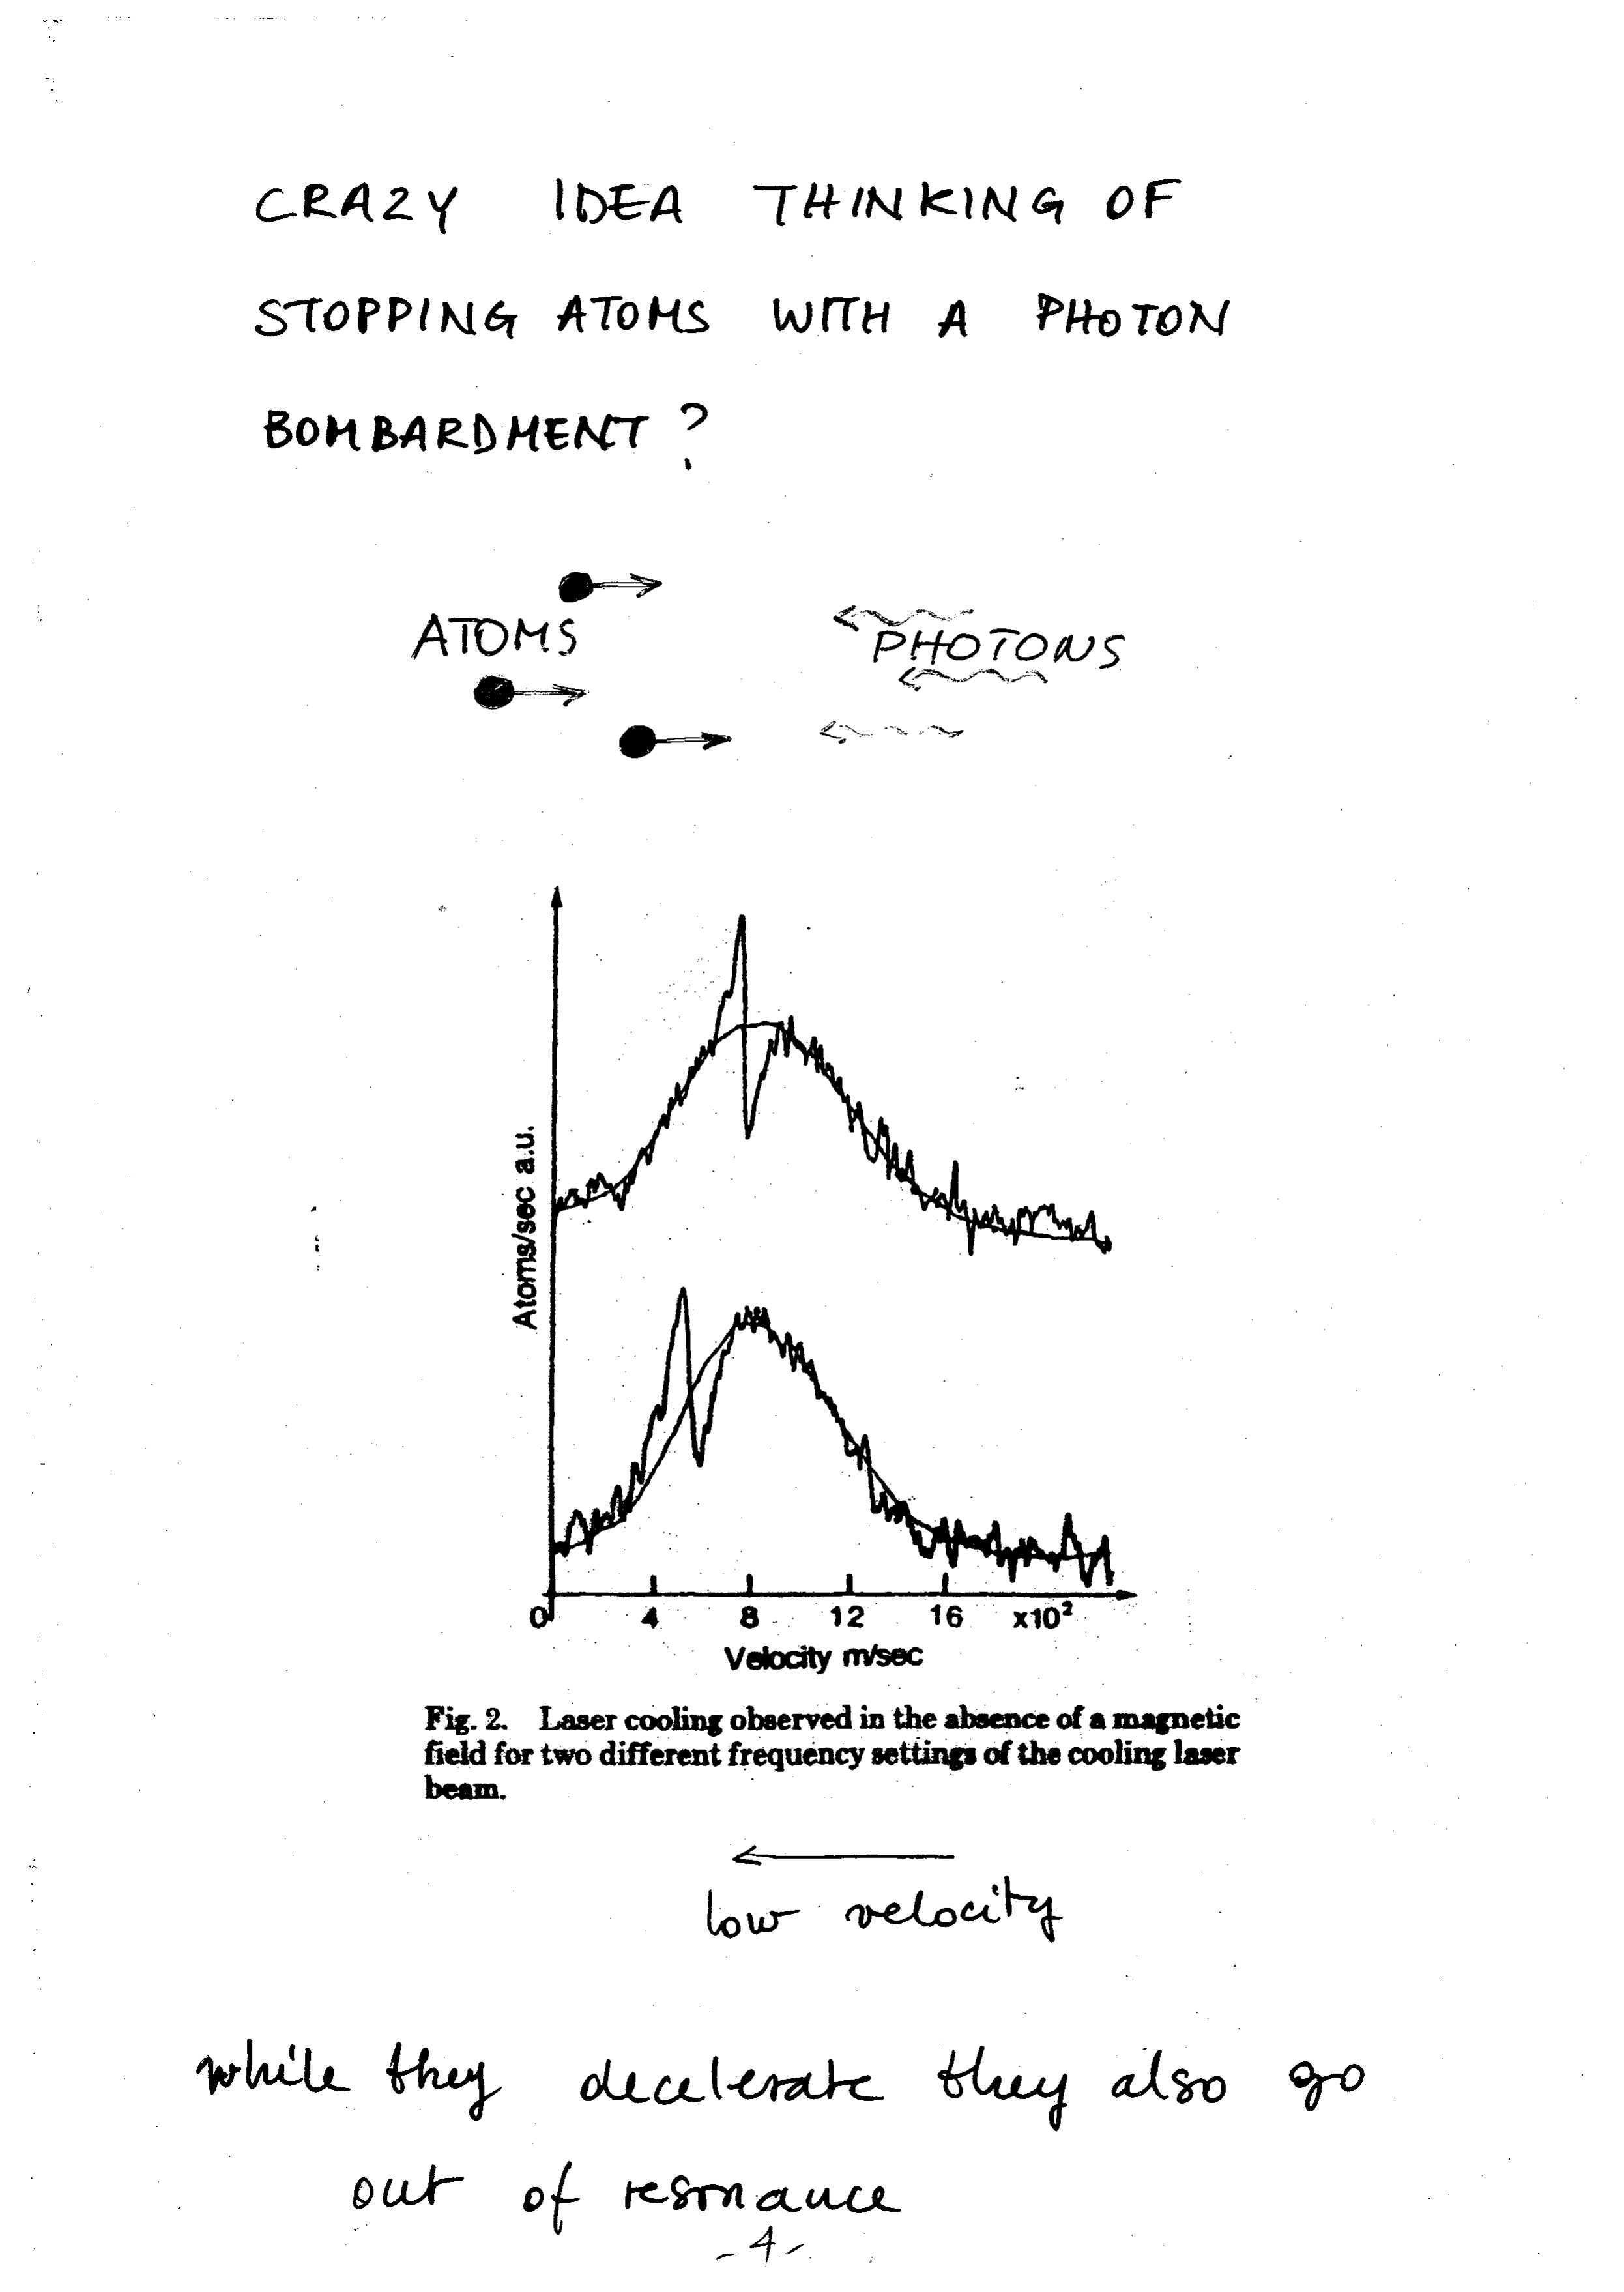 CRAZY IDEA THINKING OF
STOPPING ATOMS WITH A PHOTON
BOMBARDMENT ?
ATOMS
PHOTONS
Atoms/sec a.u.
0 4 8 12 16 x10²
Velocity m/sec
Fig. 2. Laser cooling observed in the absence of a magnetic
field for two different frequency settings of the cooling laser
beam.
low velocity
while they decelerate they also go
out of resonance
-4-